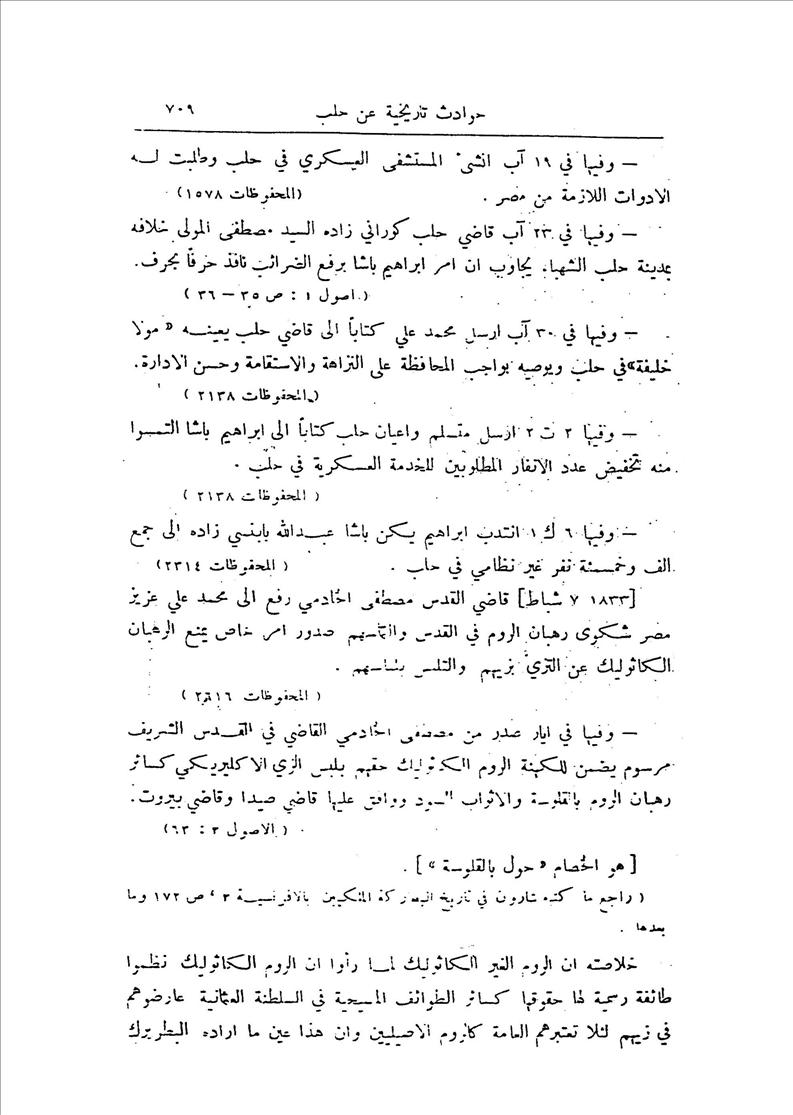 حوادث تاريخية عن حلب ٧٠٩
— وفيها في ١٩ آب انشئ المستشفى العسكري في حلب وطلبت له
الادوات اللازمة من مصر . (المحفوظات ١٥٧٨)
— وفيها في ٢٣ آب قاضي حلب كوراني زاده السيد مصطفى المولى خلافه
بمدينة حلب الشهباء يجاوب ان امر ابراهيم باشا برفع الضرائب نافذ حرفاً بحرف.
( اصول ١ : ص ٣٥ — ٣٦ )
— وفيها في ٣٠ آب ارسل محمد علي كتاباً الى قاضي حلب يعينه « مولا
خليفة» في حلب ويوصيه بواجب المحافظة على النزاهة والاستقامة وحسن الادارة.
( المحفوظات ٢١٣٨ )
— وفيها ٢ ت ٢ ارسل متسلم واعيان حلب كتاباً الى ابراهيم باشا التمسوا
منه تخفيض عدد الانفار المطلوبين للخدمة العسكرية في حلب .
( المحفوظات ٢١٣٨ )
— وفيها ٦ ك ١ انتدب ابراهيم يكن باشا عبدالله بابنسي زاده الى جمع
الف وخمسمئة نفر غير نظامي في حلب . ( المحفوظات ٢٣١٤ )
[١٨٣٣ ٧ شباط] قاضي القدس مصطفى الخادمي رفع الى محمد علي عزيز
مصر شكوى رهبان الروم في القدس والتماسهم صدور امر خاص يمنع الرهبان
الكاثوليك عن التزيّ بزيهم والتلبس بلباسهم .
( المحفوظات
— وفيها في ايار صدر من مصطفى الخادمي القاضي في القدس الشريف
مرسوم يضمن للكهنة الروم الكاثوليك حقهم بلبس الزي الاكليريكي كسائر
رهبان الروم بالقلوسة والاثواب السود ووافق عليها قاضي صيدا وقاضي بيروت.
( الاصول ٢ : ٦٣ )
[ هو الخصام « حول بالقلوسة » ] .
( راجع ما كتبه شارون في تاريخ البطاركة الملكيين بالافرنسية ٢ ، ص ١٧٢ وما
بعدها .
خلاصته ان الروم الغير الكاثوليك لما رأوا ان الروم الكاثوليك نظموا
طائفة رسمية لها حقوقها كسائر الطوائف المسيحية في السلطنة العثمانية عارضوهم
في زيهم لئلا تعتبرهم العامة كالروم الاصليين وان هذا عين ما اراده البطريرك